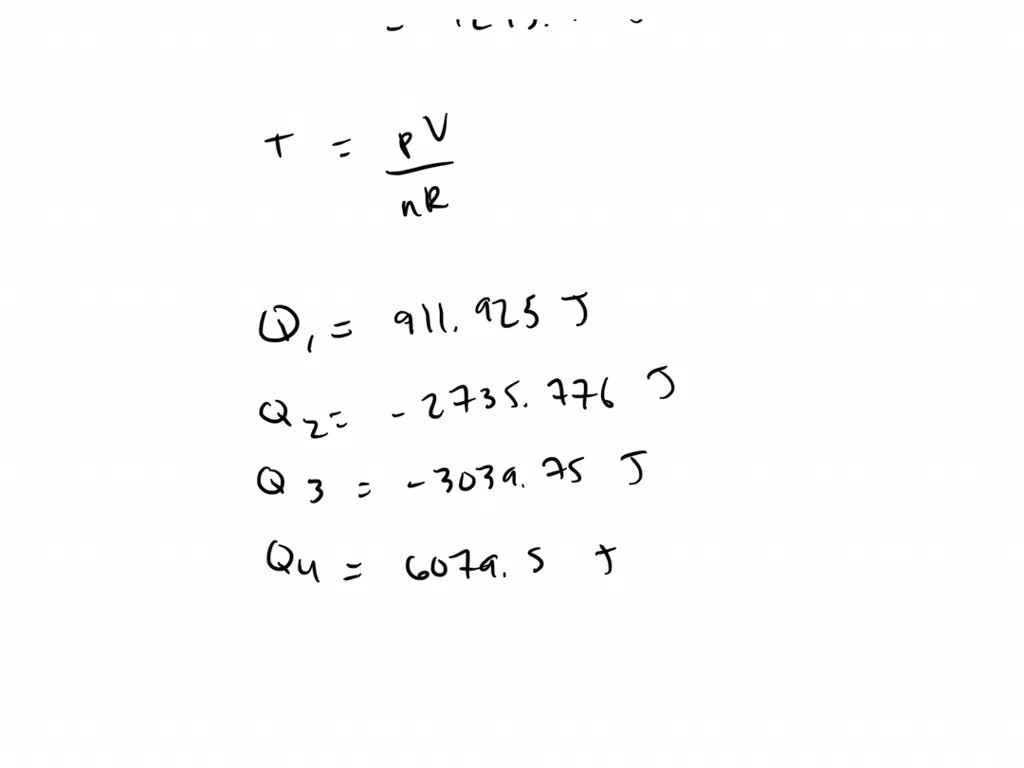 T = pV / nR
Q1 = 911.925 J
Q2 = -2735.776 J
Q3 = -3039.75 J
Q4 = 6079.5 J